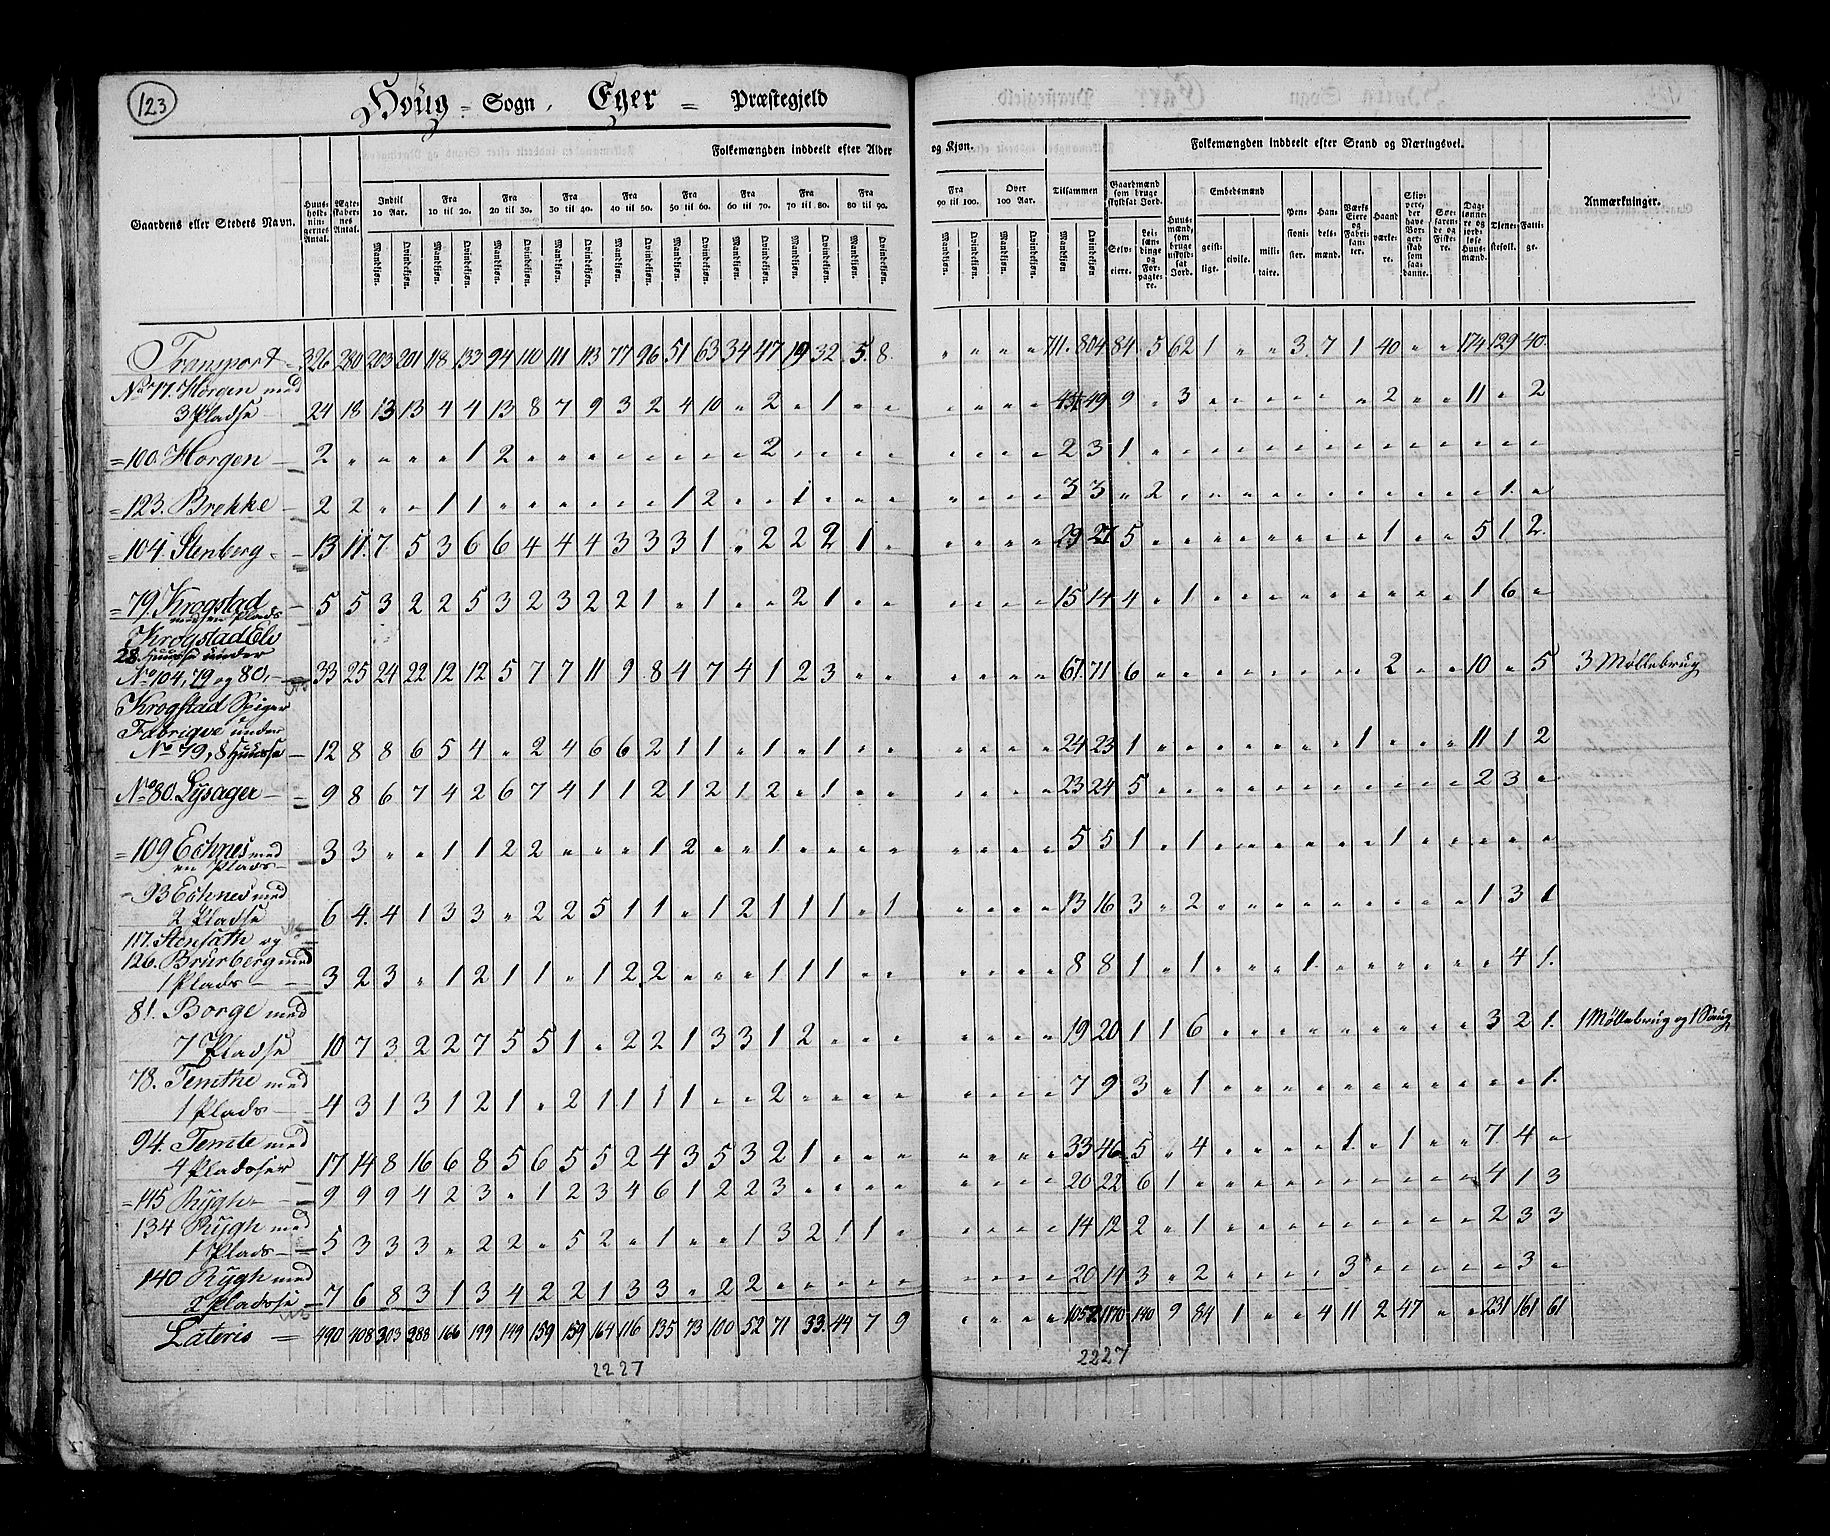 123
Houg = Sogn, Eger = Præstegjeld
Folkemængden inddeelt efter Alder og Kjøn. Folkemængden inddeelt efter Stand og Næringsvei.
Gaardens eller Stedets Navn. Huus-holdningernes Antal. Ægteskabernes Antal. Indtil 10 Aar. Fra 10 til 20. Fra 20 til 30. Fra 30 til 40. Fra 40 til 50. Fra 50 til 60. Fra 60 til 70. Fra 70 til 80. Fra 80 til 90. Fra 90 til 100. Over 100 Aar. Tilsammen Gaardmænd som bruge skyldsat Jord. Huusmænd, som bruge uskyldsat Jord. Embedsmænd Pensionister. Handelsmænd. Værks Eiere og Fabrikanter. Haandværkere. Sløipere, der have Borgerskab som saadanne. Søefarende og Fiskere. Daglønnere og jordløse Huusmænd. Tjenestefolk. Fattige. Anmærkninger.
Mandkjøn. Qvindekjøn. Mandkjøn. Qvindekjøn. Mandkjøn. Qvindekjøn. Mandkjøn. Qvindekjøn. Mandkjøn. Qvindekjøn. Mandkjøn. Qvindekjøn. Mandkjøn. Qvindekjøn. Mandkjøn. Qvindekjøn. Mandkjøn. Qvindekjøn. Mandkjøn. Qvindekjøn. Mandkjøn. Qvindekjøn. Mandkjøn. Qvindekjøn. Selveiere. Leilændinge og Forpagtere. geistlige. civile. militaire.
Transport 326 280 203 201 118 133 94 110 111 113 77 96 51 63 34 47 19 32 5 8 " " " " 711 804 84 5 62 1 " " 3 7 1 40 " " 174 129 40
No 77. Horgen med
3 Pladse 24 18 13 13 4 4 13 8 7 9 3 2 4 10 " 2 " 1 " " " " " " 49 9 " 3 " " " " " " 2 " " 11 " 2
= 100. Horgen 2 " " " " 1 2 " " " " " " " " 2 " " " " " " " " 2 3 1 " " " " " " " " " " " " " "
= 123. Brekke 2 2 " " 1 1 " " " " " " 1 2 " " 1 " " " " " " " 3 3 " 2 " " " " " " " " " " " 1 "
= 104. Stenberg 13 11 7 5 3 6 6 4 4 4 3 3 3 1 " 2 2 2 1 " " " " " 29 27 5 " " " " " " " " 1 " " 5 1 2
= 79. Krogstad
med en Plads 5 5 3 2 2 5 3 2 3 2 2 1 " 1 " " 2 1 " " " " " " 15 14 4 " 1 " " " " " " " " " 1 6 "
Krogstad Elv
28 Huusse under
No 104, 79 og 80, 33 25 24 22 12 12 5 7 7 11 9 8 4 7 4 1 2 3 " " " " " " 67 71 6 " " " " " " " " 2 " " 10 " 5 3 Møllebrug
Krogstad Spiger
Fabriqve under
No 79, 8 Huusse 12 8 8 6 5 4 " 2 4 6 6 2 1 1 " 1 " 1 " " " " " " 24 23 1 " " " " " " " 1 " " " 11 1 2
No 80. Lysager 9 8 6 7 4 2 6 7 4 1 1 2 1 2 1 2 " 1 " " " " " " 23 24 5 " " " " " " " " " " " 2 3 "
= 109 Echnes med
en Plads 3 3 " " 1 1 2 2 " " " 1 2 " " 1 " " " " " " " " 5 5 1 " 1 " " " " " " 1 " " " " "
= 93 Echnes med
2 Pladse 6 4 4 1 3 3 " 2 2 5 1 1 " 1 2 1 1 1 " 1 " " " " 13 16 3 " 2 " " " " " " " " " 1 3 1
117. Stensæth og
126. Brurberg med
1 Plads 3 2 3 " 1 2 1 1 " 1 2 2 " " " 1 1 1 " " " " " " 8 8 1 " 1 " " " 1 " " " " " " 4 1
81. Borge med
7 Pladse 10 7 3 2 2 7 5 5 1 " 2 2 1 3 3 1 2 " " " " " " " 19 20 1 1 6 " " " " " " " " " 3 2 1 1 Møllebrug og 1 Saug
78. Temthe med
1 Plads 4 3 1 3 1 2 1 " 2 1 1 1 1 " " 2 " " " " " " " " 7 9 3 " 1 " " " " " " " " " " " 1
94. Temte med
4 Pladser 17 14 8 16 6 8 5 6 5 5 2 4 3 5 3 2 1 " " " " " " " 33 46 5 " 4 " " " " " 1 " 1 " " 7 4 "
= 145 Rygh 9 9 9 4 2 3 " 1 2 3 4 6 1 2 2 3 " " " " " " " " 20 22 6 1 " " " " " " " " " " 4 1 3
134 Rygh med
1 Plads 5 3 3 3 " 2 2 " 5 2 " 1 " " 1 3 2 1 1 " " " " " 14 12 2 " 1 " " " " " " " " " 2 3 3
140 Rygh med
2 Pladse 7 6 8 3 1 3 4 2 2 1 3 3 " 2 2 " " " " " " " " " 20 14 3 " 2 " " " " 3 " " " " " 3 "
Lateris = 490 408 303 288 166 199 149 159 159 164 116 135 73 100 52 71 33 44 7 9 " " " " 1057 1170 140 9 84 1 " " 4 11 2 47 " " 231 161 61
2227 2227